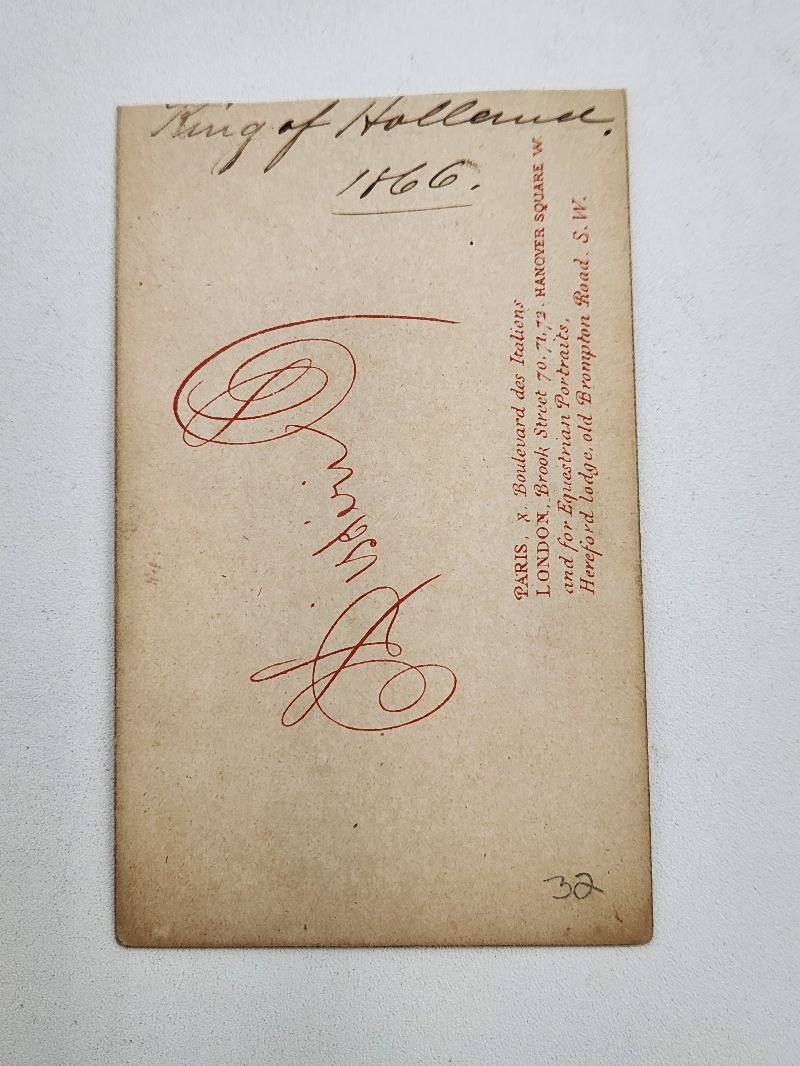 King of Holland.
1866.
Disdéri
PARIS, 8, Boulevard des Italiens
LONDON, Brook Street 70, 71, 72. HANOVER SQUARE W.
and for Equestrian Portraits,
Hereford lodge, old Brompton Road. S.W.
32